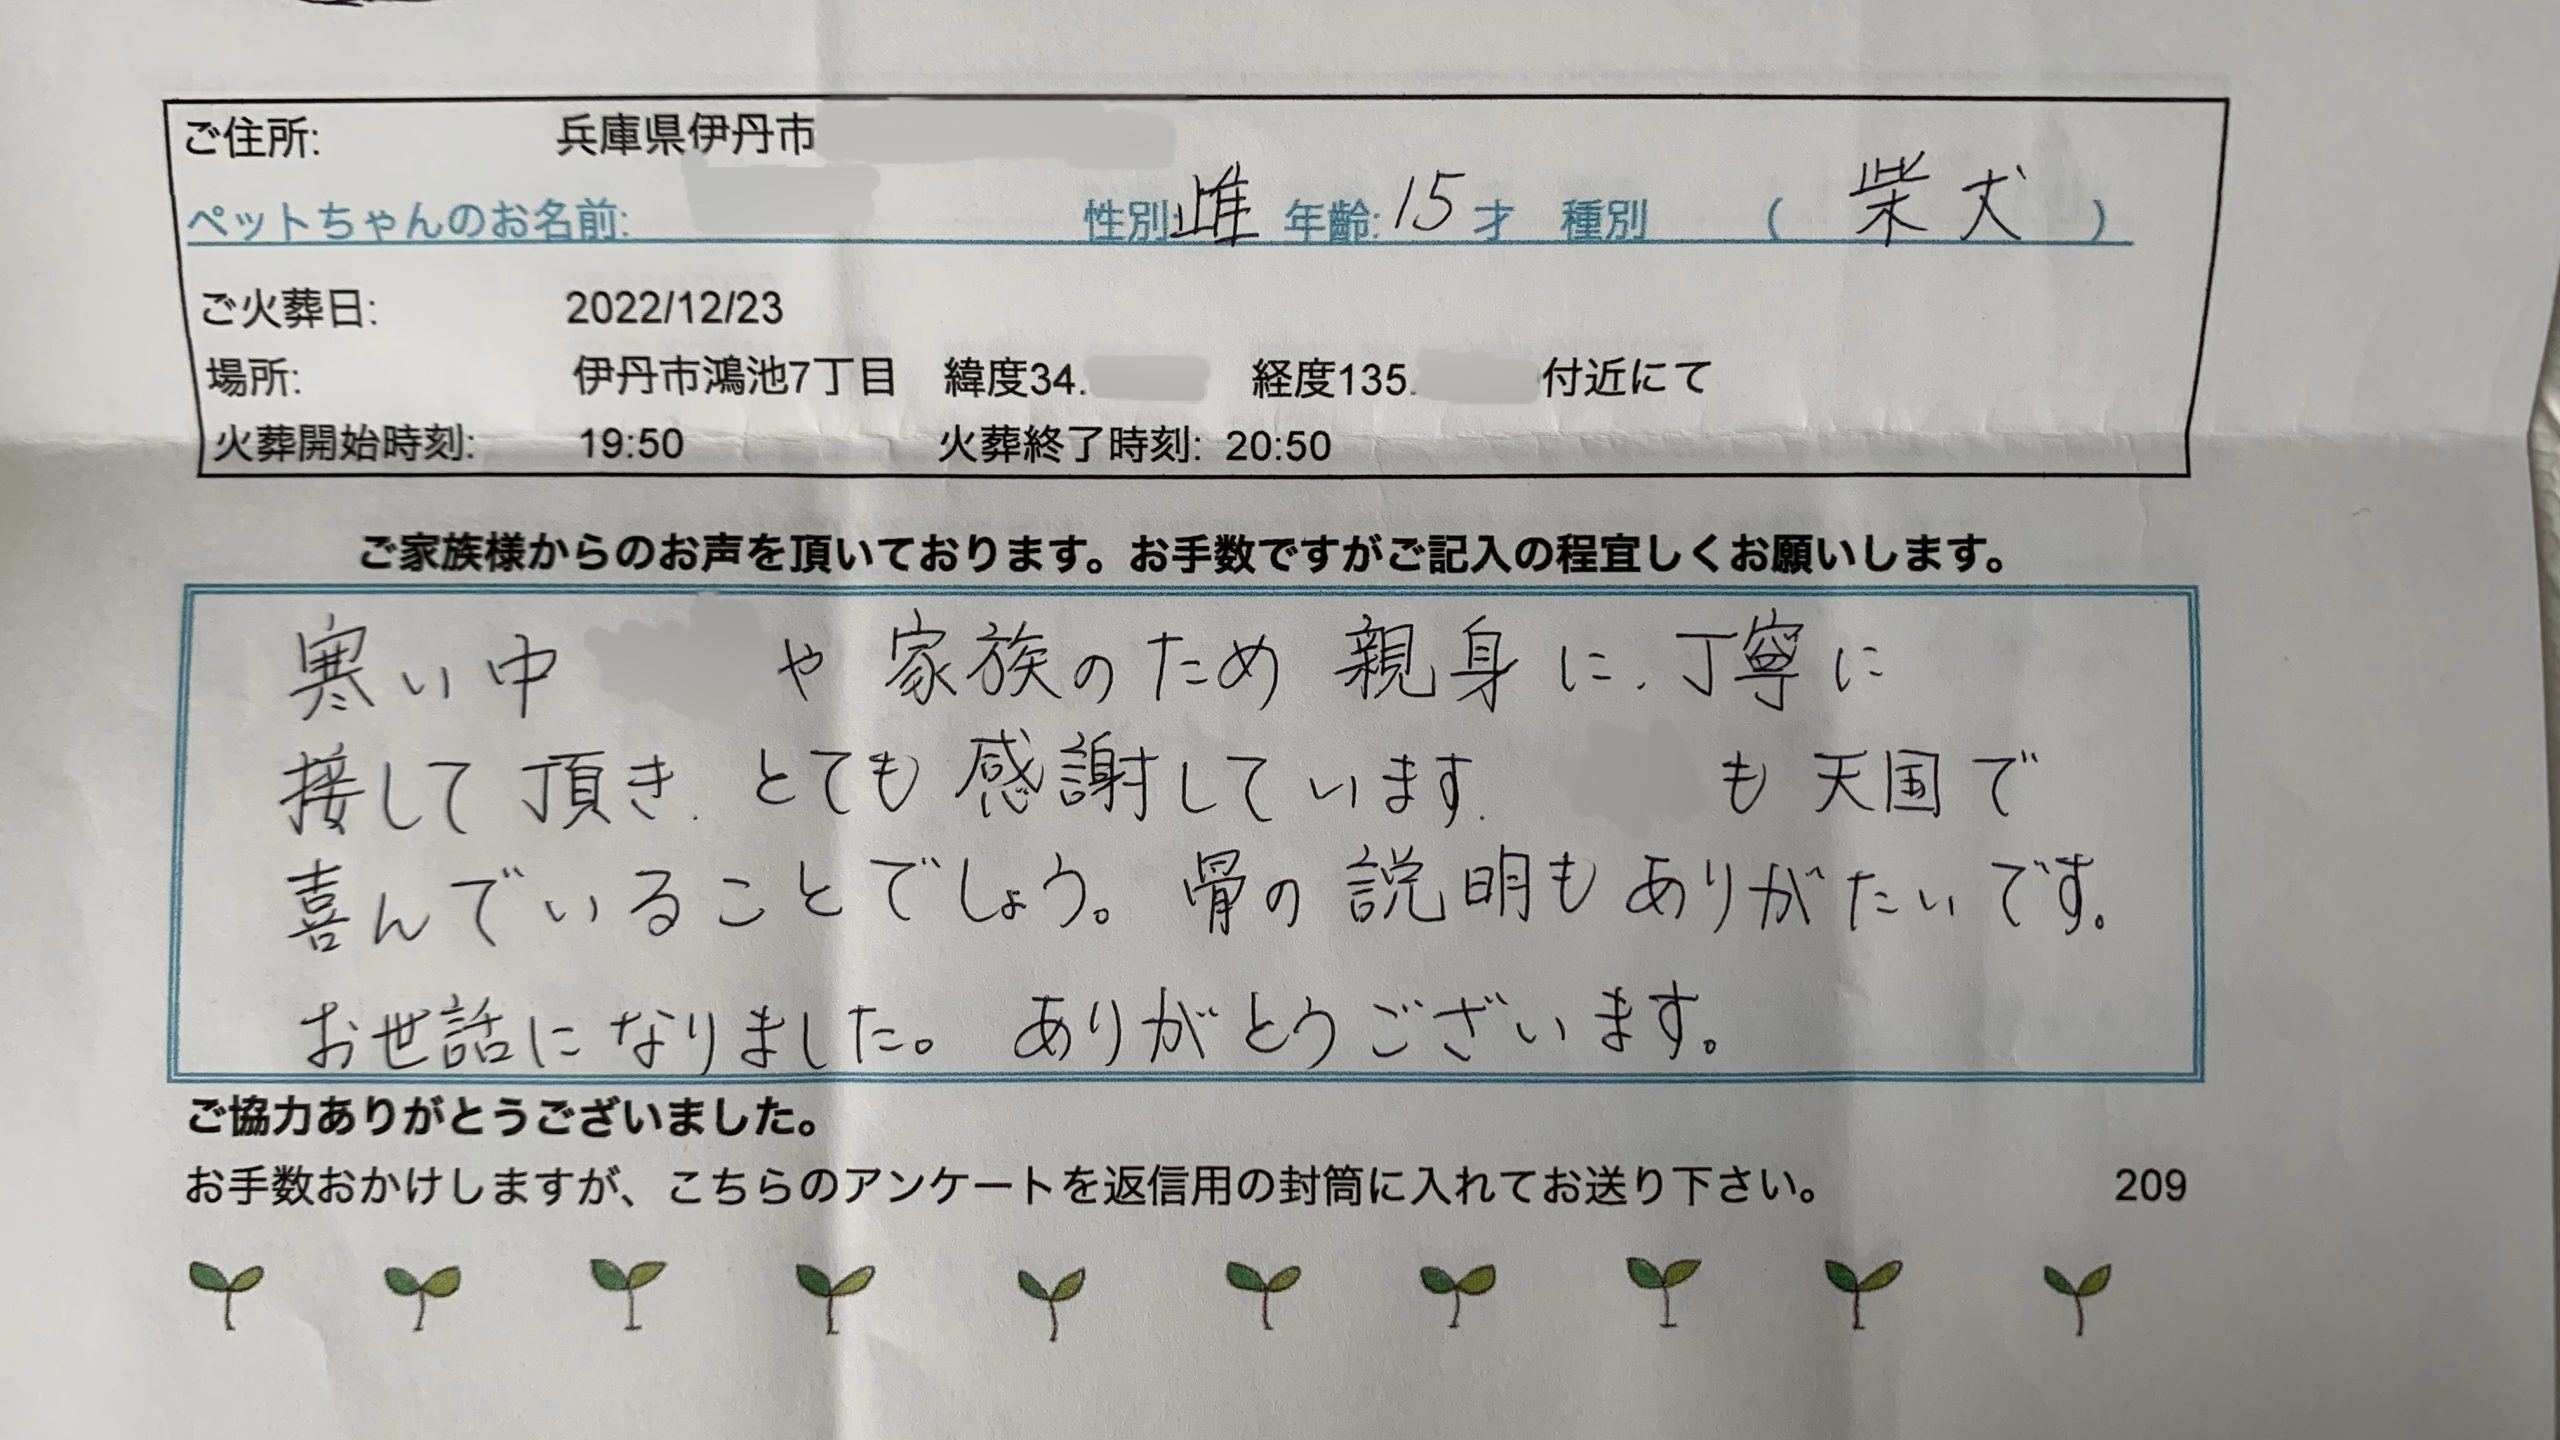 ご住所: 兵庫県伊丹市
ペットちゃんのお名前: 性別:雌 年齢:15才 種別 ( 柴犬 )
ご火葬日: 2022/12/23
場所: 伊丹市鴻池7丁目 緯度34. 経度135. 付近にて
火葬開始時刻: 19:50 火葬終了時刻: 20:50
ご家族様からのお声を頂いております。お手数ですがご記入の程宜しくお願いします。
寒い中 や家族のため親身に、丁寧に
接して頂き、とても感謝しています。 も天国で
喜んでいることでしょう。骨の説明もありがたいです。
お世話になりました。ありがとうございます。
ご協力ありがとうございました。
お手数おかけしますが、こちらのアンケートを返信用の封筒に入れてお送り下さい。 209